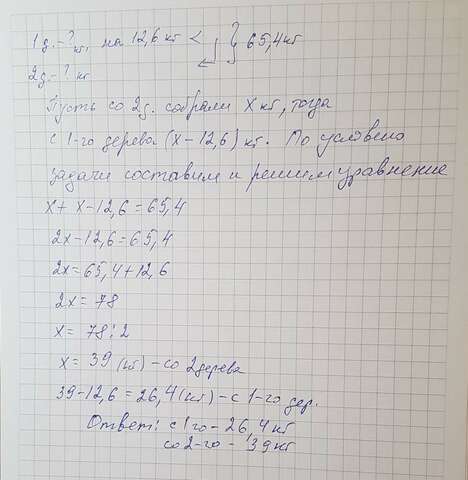 1д. - ? кг, на 12,6 кг < } 65,4 кг
2д. - ? кг
Пусть со 2д. собрали x кг, тогда
с 1-го дерева (x - 12,6) кг. По условию
задачи составим и решим уравнение
x + x - 12,6 = 65,4
2x - 12,6 = 65,4
2x = 65,4 + 12,6
2x = 78
x = 78 : 2
x = 39 (кг) - со 2 дерева
39 - 12,6 = 26,4 (кг) - с 1-го дер.
Ответ: с 1го - 26,4 кг
со 2-го - 39 кг